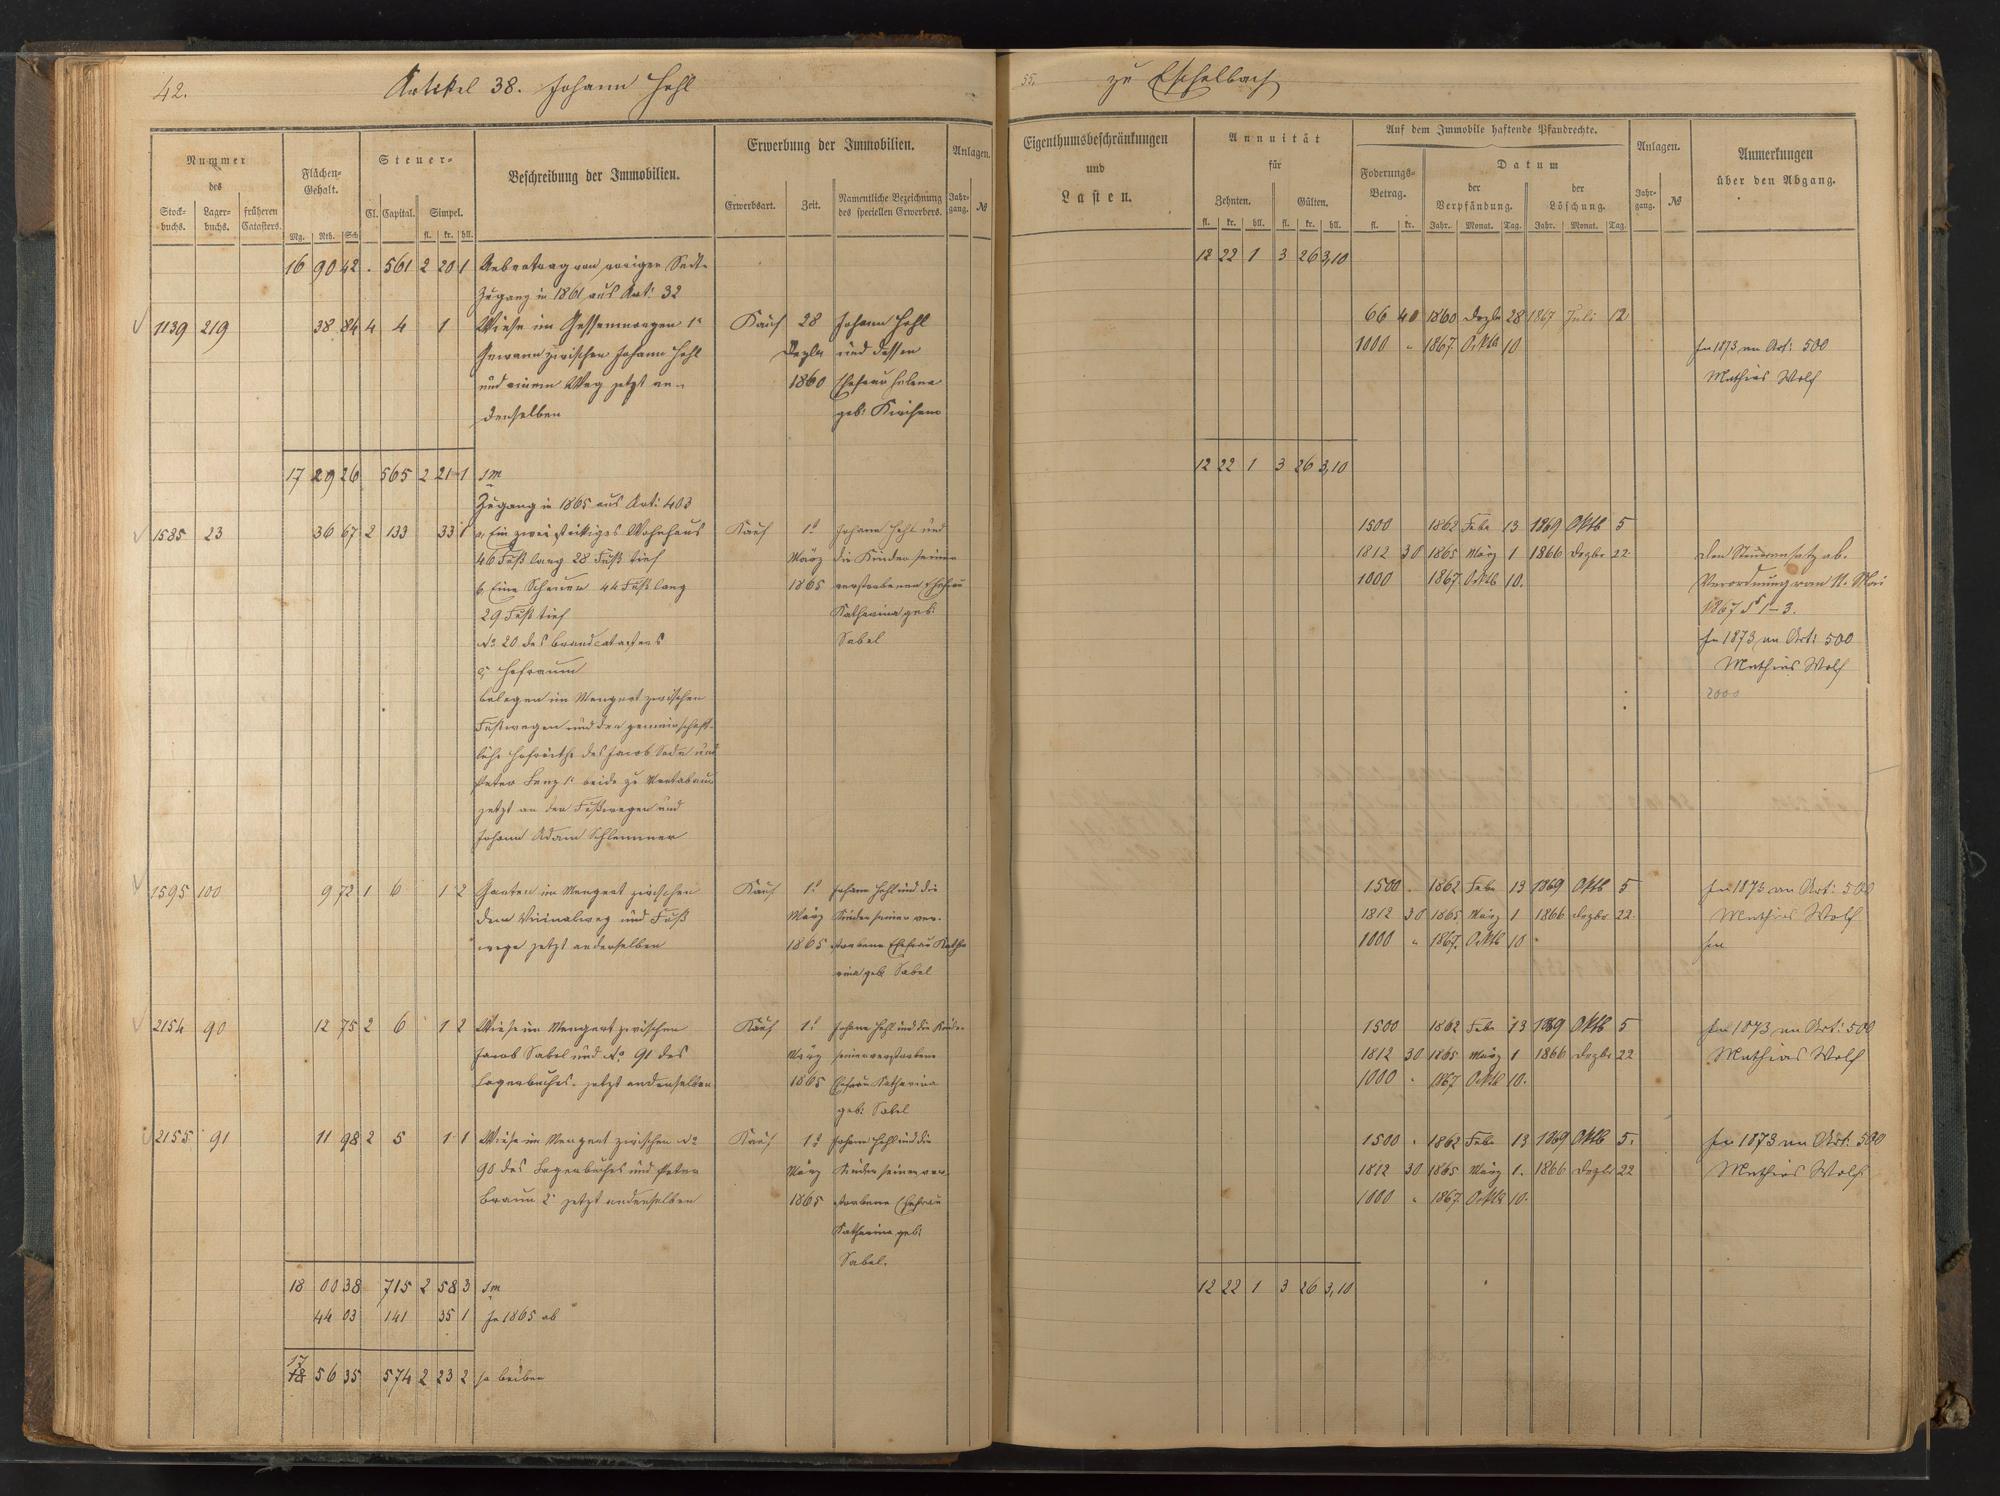 42.
Artikel 38. Johann Hehl
Nummer
des
Stock-
buchs.
Lager-
buchs.
früheren
Catasters.
Flächen-
Gehalt.
Mg. Rth. Sch
Steuer-
Cl. Capital. Simpel.
fl. kr. hll.
Beschreibung der Immobilien.
Erwerbung der Immobilien.
Erwerbsart. Zeit.
Namentliche Bezeichnung
des speciellen Erwerbers.
Anlagen.
Jahr-
gang.
№
16 90 42 . 561 2 20 1 Uebertrag von voriger Seite
Zugang in 1861 aus Art: 32
1139 219 38 84 4 4 1 Wiese im 1r Kauf 28 Johann Hehl
Gewann zwischen Johann Hehl Dezbr und dessen
und einem Weg jetzt an 1860 Ehefrau Helena
denselben geb:
17 29 26 565 2 21 1 Sm
Zugang in 1865 aus Art: 403
1585 23 36 67 2 133 33 1 a, Ein zweistöckiges Wohnhaus Kauf 1t Johann Hehl und
46 Fuß lang 28 Fuß tief März die Kinder seiner
b, Eine Scheuer 44 Fuß lang 1865 verstorbenen Ehefrau
29 Fuß tief Katharina geb:
№ 20 des Brandcatasters Sabel
c, Hofraum
belegen im Mengert zwischen
Fußwegen und der gemeinschaft-
liche Hofreithe des Jacob und
Peter 1r beide zu Montabaur
jetzt an den Fußwegen und
Johann Adam Schlemmer
1595 100 9 72 1 6 1 2 Garten im Mengert zwischen Kauf 1t Johann Hehl und die
dem Vicinalweg und Fuß- März Kinder seiner ver-
wege jetzt anderselben 1865 storbene Ehefrau Katha
rina geb: Sabel
2154 90 12 75 2 6 1 2 Wiese im Mengert zwischen Kauf 1t Johann Hehl und die Kinder
Jacob Sabel und № 91 des März seiner verstorbene
Lagerbuches. jetzt andenselben 1865 Ehefrau Katharina
geb: Sabel
2155 91 11 98 2 5 1 1 Wiese im Mengert zwischen № Kauf 1t Johann Hehl und die
90 des Lagerbuches und Peter März Kinder seiner ver-
Braun 2r jetzt andenselben 1865 storbene Ehefrau
Katharina geb:
Sabel.
18 00 38 715 2 58 3 Sm
44 03 141 35 1 In 1865 ab
17
18 56 35 574 2 23 2 so bleiben
55.
zu Eschelbach
Eigenthumsbeschränkungen
und
Lasten.
Annuität
für
Zehnten. Gülten.
fl. kr. hll. fl. kr. hll.
Auf dem Immobile haftende Pfandrechte.
Foderungs-
Betrag.
fl. kr.
Datum
der
Verpfändung.
der
Löschung.
Jahr. Monat. Tag. Jahr. Monat. Tag.
Anlagen.
Jahr-
gang.
№
Anmerkungen
über den Abgang.
12 22 1 3 26 3,10
66 40 1860 Dezbr 28 1867 Juli 12
1000 " 1867. Octbr 10 In 1873 an Art: 500
Mathias Wolf
12 22 1 3 26 3,10
1500 1862 Febr 13 1869 Oktb 5
1812 30 1865 März 1 1866 Dezbr 22 Den Steueransatz ab.
1000 1867. Octbr 10. Verordnung vom 11. Mai
1867 §§ 1-3.
In 1873 an Art: 500
Mathias Wolf
2000
1500 . 1862 Febr 13 1869 Oktb 5 In 1873 an Art: 500
1812 30 1865 März 1 1866 Dezbr 22. Mathias Wolf
1000 " 1867. Octbr 10 In
1500 1862 Febr 13 1869 Oktb 5 In 1873 an Art: 500
1812 30 1865 März 1 1866 Dezbr 22 Mathias Wolf
1000 . 1867 Octbr 10.
1500 . 1862 Febr 13 1869 Oktb 5. In 1873 an Art. 500
1812 30 1865 März 1. 1866 Dezbr 22 Mathias Wolf
1000 " 1867. Octbr 10.
12 22 1 3 26 3,10